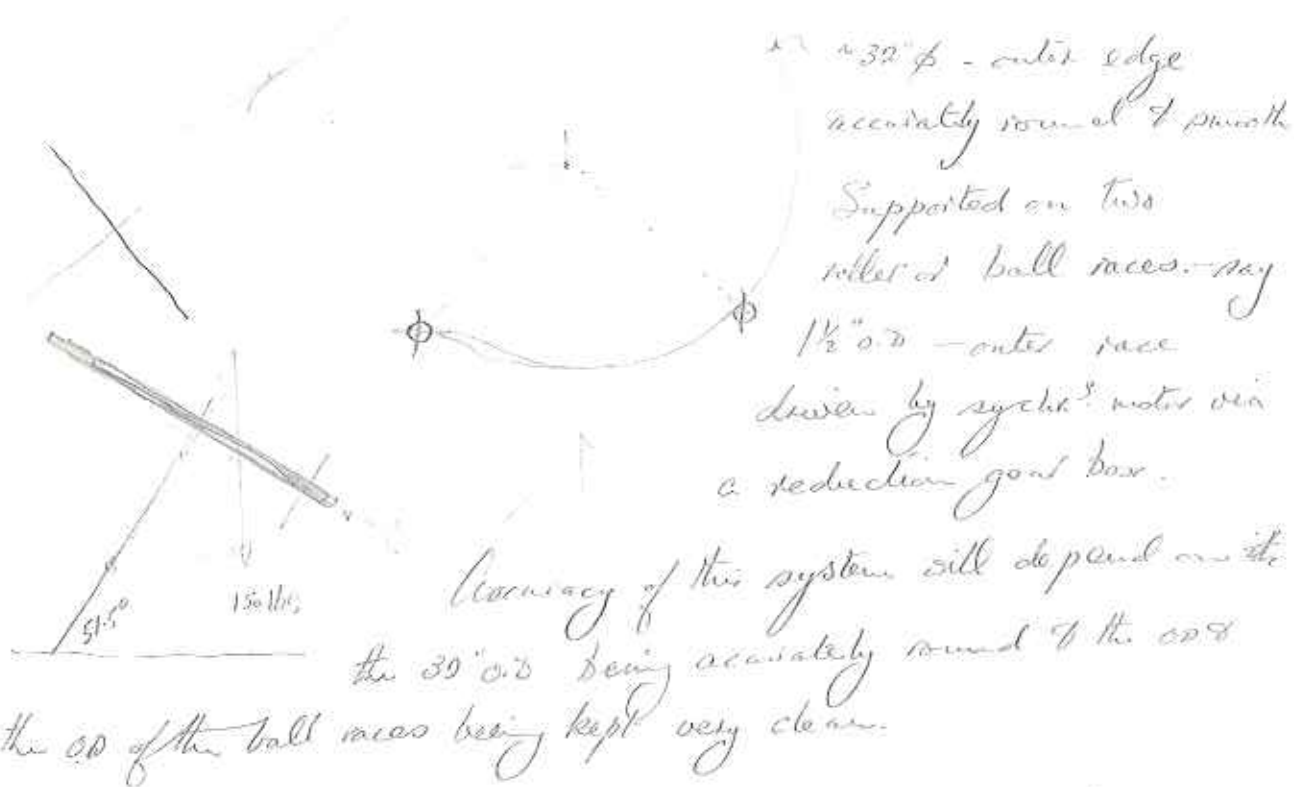 ~32"ø - outer edge
accurately round & smooth
Supported on two
roller or ball races. - say
1½" O.D - outer race
driven by sychrs. motor via
a reduction gear box.
Accuracy of this system will depend on
the 32" O.D being accurately round & the OD &
the OD of the ball races being kept very clean.
150 lbs
51.5°